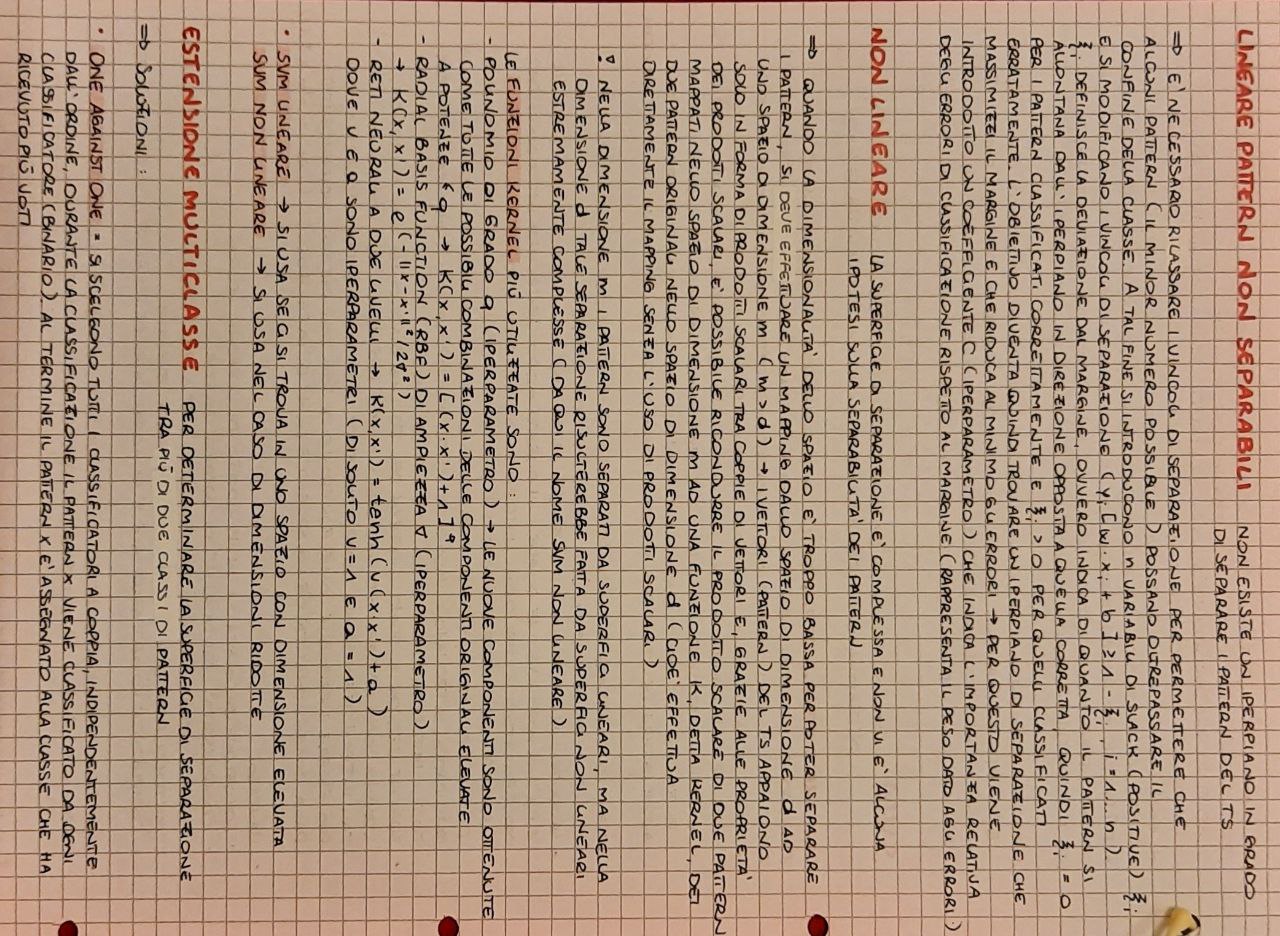 LINEARE PATTERN NON SEPARABILI NON ESISTE UN IPERPIANO IN GRADO
DI SEPARARE I PATTERN DEL TS
⇒ E' NECESSARIO RILASSARE I VINCOLI DI SEPARAZIONE PER PERMETTERE CHE
ALCUNI PATTERN (IL MINOR NUMERO POSSIBILE) POSSANO OLTREPASSARE IL
CONFINE DELLA CLASSE. A TAL FINE SI INTRODUCONO n VARIABILI DI SLACK (POSITIVE) ξᵢ
E SI MODIFICANO I VINCOLI DI SEPARAZIONE (yᵢ[w·xᵢ+b] ≥ 1 - ξᵢ, i=1...n)
ξᵢ DEFINISCE LA DEVIAZIONE DAL MARGINE, OVVERO INDICA DI QUANTO IL PATTERN SI
ALLONTANA DALL'IPERPIANO IN DIREZIONE OPPOSTA A QUELLA CORRETTA, QUINDI ξᵢ = 0
PER I PATTERN CLASSIFICATI CORRETTAMENTE E ξᵢ > 0 PER QUELLI CLASSIFICATI
ERRATAMENTE. L'OBIETTIVO DIVENTA QUINDI TROVARE UN IPERPIANO DI SEPARAZIONE CHE
MASSIMIZZI IL MARGINE E CHE RIDUCA AL MINIMO GLI ERRORI → PER QUESTO VIENE
INTRODOTTO UN COEFFICIENTE C (IPERPARAMETRO) CHE INDICA L'IMPORTANZA RELATIVA
DEGLI ERRORI DI CLASSIFICAZIONE RISPETTO AL MARGINE (RAPPRESENTA IL PESO DATO AGLI ERRORI)
NON LINEARE LA SUPERFICIE DI SEPARAZIONE E' COMPLESSA E NON VI E' ALCUNA
IPOTESI SULLA SEPARABILITA' DEI PATTERN
⇒ QUANDO LA DIMENSIONALITA' DELLO SPAZIO E' TROPPO BASSA PER POTER SEPARARE
I PATTERN, SI DEVE EFFETTUARE UN MAPPING DALLO SPAZIO DI DIMENSIONE d AD
UNO SPAZIO DI DIMENSIONE m (m>d) → I VETTORI (PATTERN) DEL TS APPAIONO
SOLO IN FORMA DI PRODOTTI SCALARI TRA COPPIE DI VETTORI E, GRAZIE ALLE PROPRIETA'
DEI PRODOTTI SCALARI, E' POSSIBILE RICONDURRE IL PRODOTTO SCALARE DI DUE PATTERN
MAPPATI NELLO SPAZIO DI DIMENSIONE m AD UNA FUNZIONE K, DETTA KERNEL, DEI
DUE PATTERN ORIGINALI NELLO SPAZIO DI DIMENSIONE d (CIOE' EFFETTUA
DIRETTAMENTE IL MAPPING SENZA L'USO DI PRODOTTI SCALARI)
! NELLA DIMENSIONE m I PATTERN SONO SEPARATI DA SUPERFICI LINEARI, MA NELLA
DIMENSIONE d TALE SEPARAZIONE RISULTEREBBE FATTA DA SUPERFICI NON LINEARI
ESTREMAMENTE COMPLESSE (DA QUI IL NOME SVM NON LINEARE)
LE FUNZIONI KERNEL PIÙ UTILIZZATE SONO:
- POLINOMIO DI GRADO q (IPERPARAMETRO) → LE NUOVE COMPONENTI SONO OTTENUTE
COME TUTTE LE POSSIBILI COMBINAZIONI DELLE COMPONENTI ORIGINALI ELEVATE
A POTENZE ≤ q → K(x,x') = [(x·x')+1]^q
- RADIAL BASIS FUNCTION (RBF) DI AMPIEZZA ∇ (IPERPARAMETRO)
→ K(x,x') = e^(-||x-x'||²/2∇²)
- RETI NEURALI A DUE LIVELLI → K(x,x') = tenh(ν(x·x')+a)
DOVE ν E a SONO IPERPARAMETRI (DI SOLITO ν=1 E a=1)
• SVM LINEARE → SI USA SE CI SI TROVA IN UNO SPAZIO CON DIMENSIONE ELEVATA
SVM NON LINEARE → SI USA NEL CASO DI DIMENSIONI RIDOTTE
ESTENSIONE MULTICLASSE PER DETERMINARE LA SUPERFICIE DI SEPARAZIONE
TRA PIÙ DI DUE CLASSI DI PATTERN
⇒ SOLUZIONI:
• ONE AGAINST ONE = SI SCELGONO TUTTI I CLASSIFICATORI A COPPIA, INDIPENDENTEMENTE
DALL'ORDINE, DURANTE LA CLASSIFICAZIONE IL PATTERN x VIENE CLASSIFICATO DA OGNI
CLASSIFICATORE (BINARIO). AL TERMINE IL PATTERN x E' ASSEGNATO ALLA CLASSE CHE HA
RICEVUTO PIÙ VOTI